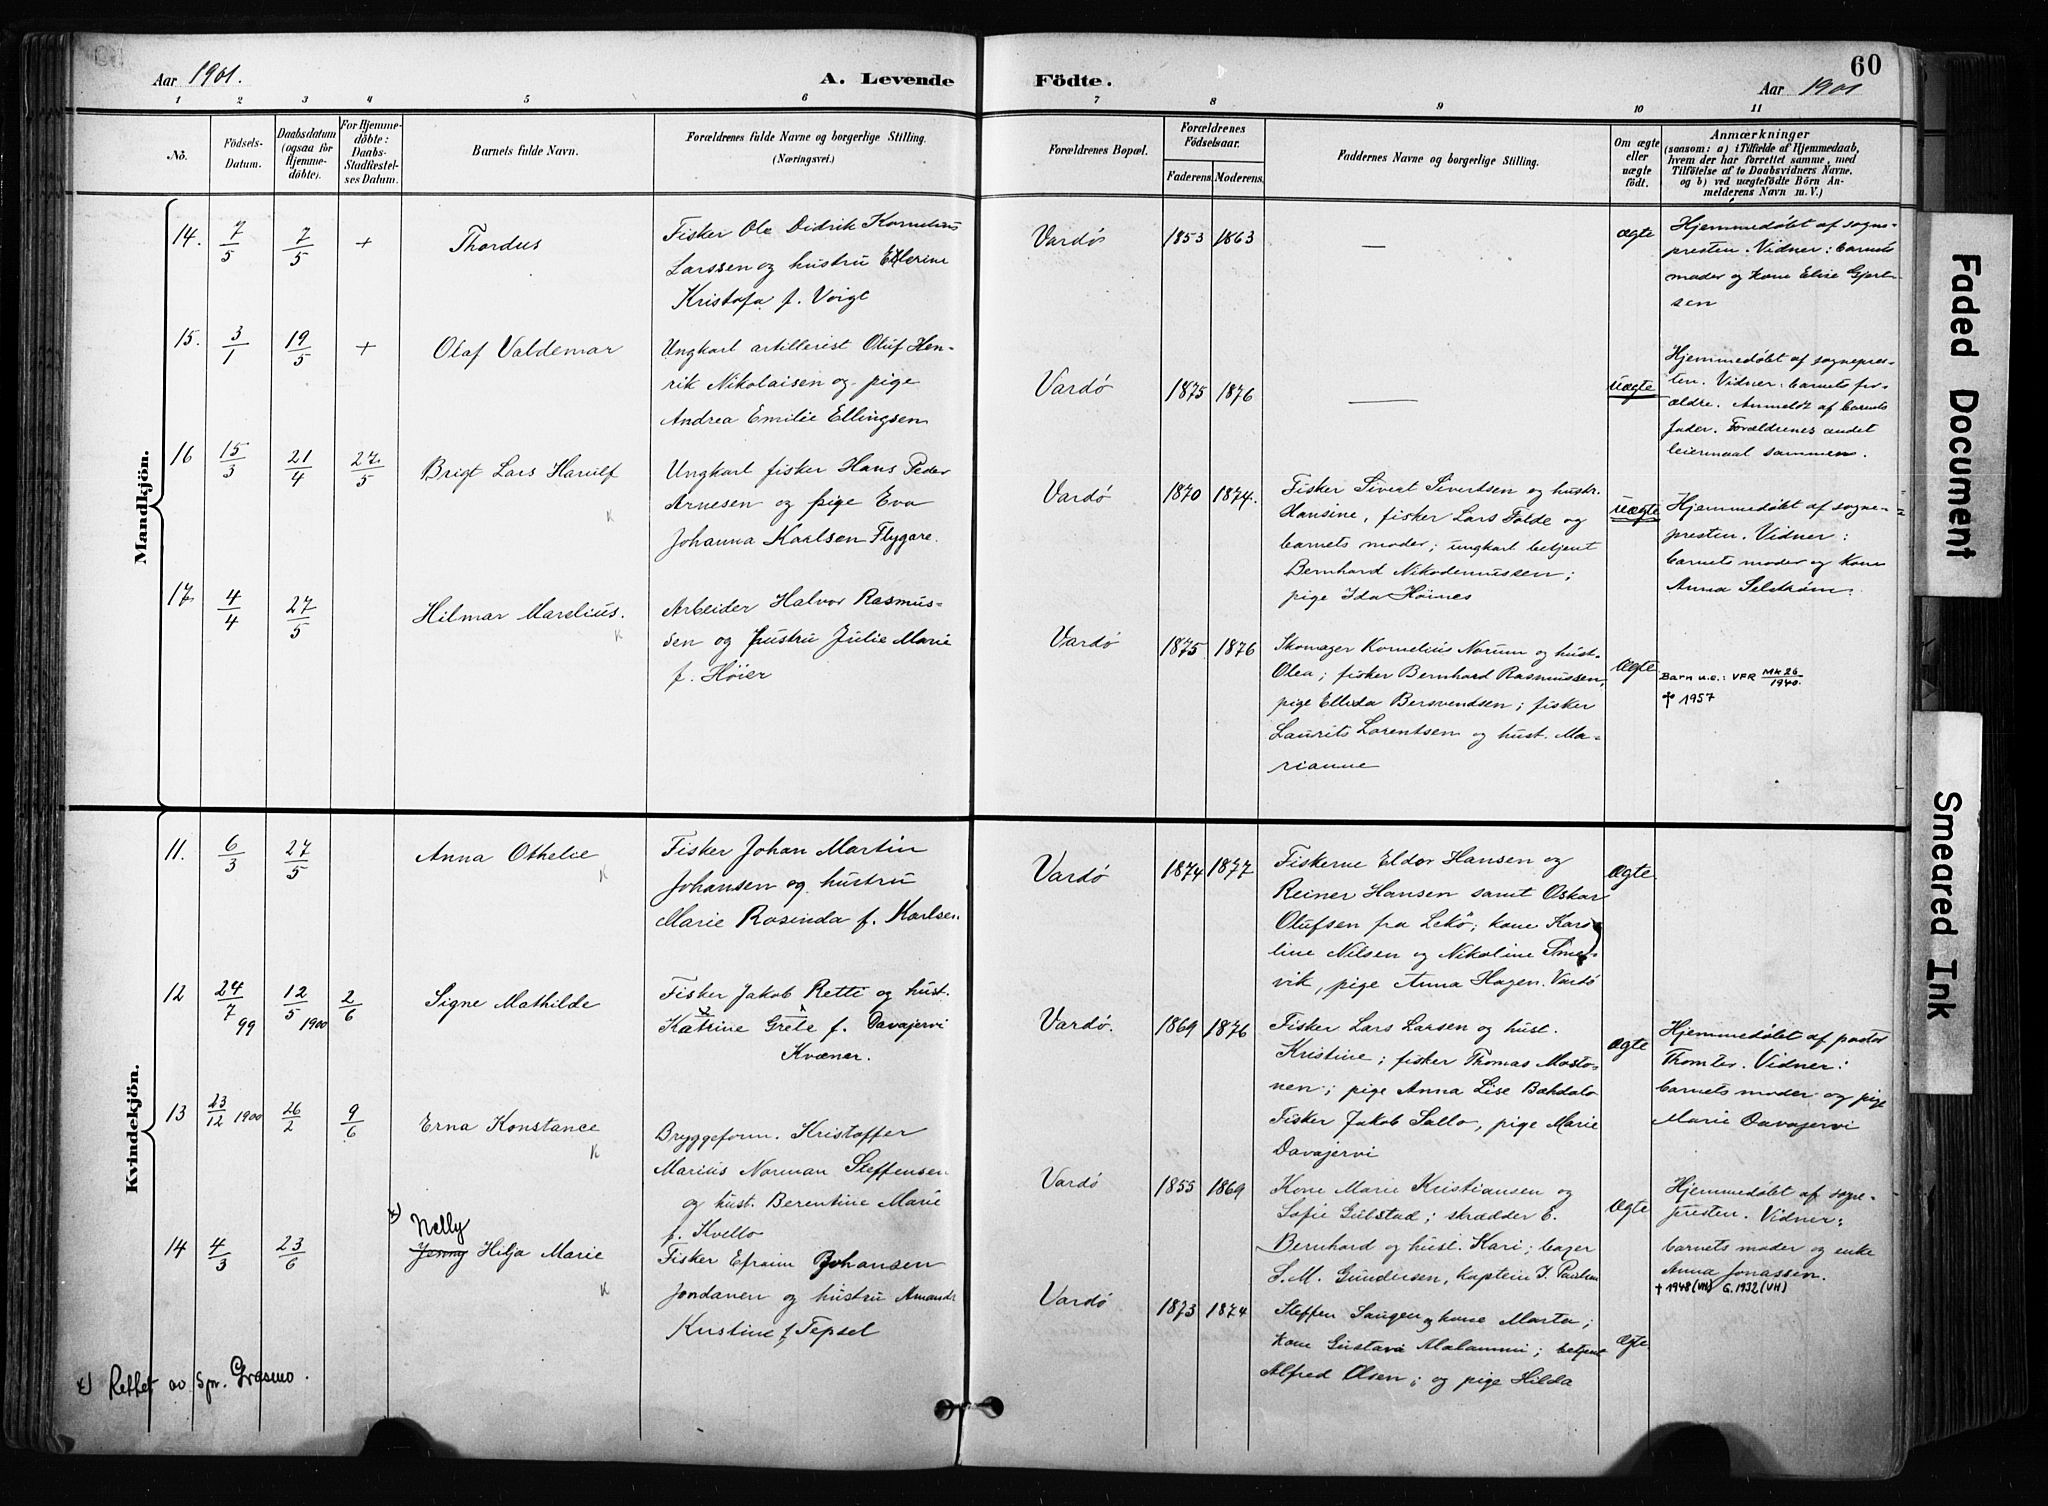 Aar 1901.
A. Levende
Födte.
60
Aar 1901
1 2 3 4 5 6 7 8 9 10 11
No.
Födsels-
Datum.
Daabsdatum
(ogsaa for
Hjemme-
döbte).
For Hjemme-
döbte:
Daabs-
Stadfæstel-
ses Datum.
Barnets fulde Navn.
Forældrenes fulde Navne og borgerlige Stilling.
(Næringsvei.)
Forældrenes Bopæl.
Forældrenes
Födselsaar.
Faderens. Moderens.
Faddernes Navne og borgerlige Stilling.
Om ægte
eller
uægte
födt.
Anmærkninger
(saasom: a) i Tilfælde af Hjemmedaab,
hvem der har forrettet samme, med
Tilföielse af to Daabsvidners Navne,
og b) ved uægtefödte Börn An-
melderens Navn m. V.)
Mandkjön.
14. 7/5 7/5 + Thordus
Fisker Ole Didrik Kornelius
Larssen og hustru
Kristofa f. Voigt
Vardø 1853 1863 — ægte
Hjemmedøbt af sogne-
presten. Vidner: barnets
moder og kone Elise Gjert-
sen
15. 3/1 19/5 + Olaf Valdemar
Ungkarl artillerist Oluf Hen-
rik Nikolaisen og pige
Andrea Emilie Ellingsen
Vardø 1875 1876 — uægte
Hjemmedøbt af sognepres-
ten. Vidner: barnets for-
ældre. Anmeldt af barnets
fader. Forældrenes andet
leiermaal sammen.
16 15/3 21/4 27/5 Brigt Lars Harulf
K
Ungkarl fisker Hans Peder
Arnesen og pige Eva
Johanna Karlsen Flygare.
Vardø 1870 1874. uægte
Fisker Sivert Sivertsen og hustr.
Hansine, fisker Lars Folde og
barnets moder; ungkarl betjent
Bernhard Nikodemussen;
pige Ida Høines
Hjemmedøbt af sogne-
presten. Vidner:
barnets moder og kone
Anna Selstrøm.
17. 4/4 27/5 Hilmar Marelius.
K
Arbeider Halvor Rasmus-
sen og hustru Julie Marie
f. Höier
Vardø 1875 1876 Ægte
Skomager Kornelius Norum og hust.
Olea; fisker Bernhard Rasmussen,
pige Ellida Bersvendsen; fisker
Laurits Lorentsen og hust. Ma-
rianne
Barn u.e.: VFR Mk 26/1940.
✝ 1957
Kvindekjön.
11. 6/3 27/5 Anna Othelie
K
Fisker Johan Martin
Johansen og hustru
Marie Rosinda f. Karlsen.
Vardø 1874 1877 Ægte
Fiskerne Eldor Hansen og
Reiner Hansen samt Oskar
Olufsen fra Lekö; kone Karo-
line Nilsen og Nikoline Sme-
vik, pige Anna Hagen. Vardö
12 24/7 99 12/5 1900 2/6 Signe Mathilde
Fisker Jakob Retti og hust.
Katrine Grete f. Davajervi
Kvæner.
Vardø. 1869 1876 Ægte
Fisker Lars Larsen og hust.
Kristine; fisker Thomas Mosto-
nen; pige Anna Lise Bahdalo
Fisker Jakob Sallo, pige Marie
Davajervi
Hjemmedøbt af pastor
Thomter. Vidner:
barnets moder og pige
Marie Davajervi
13 23/12 1900 26/2 9/6 Erna Konstance
K
Bryggeform. Kristoffer
Marius Norman Steffensen
og hust. Berentine Marie
f. Kvello
Vardø 1855 1869 Ægte
Kone Marie Kristiansen og
Sofie Gulstad; skrædder E.
Bernhard og hust. Kari; bager
S. M. Gundersen, kaptein J. Paulsen
Hjemmedøbt af sogne-
presten. Vidner:
barnets moder og enke
Anna Jonassen.
✝ 1948 (VH) G. 1932 (VH)
14 4/3 23/6 x) Nelly
Jenny Hilja Marie
K
Fisker Efraim Johansen
Jondanen og hustru Amanda
Kristine f. Tepsel
Vardø 1873 1874 Ægte
Steffen Saugen og kone Marta;
kone Gustava Alalammi; betjent
Alfred Olsen; og pige Hilda
x) Rettet av Spr. Græsmo.
Faded Document
Smeared Ink